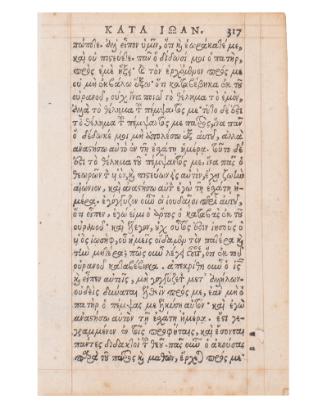 ΚΑΤΑ ΙΩΑΝ. 317
πώποτε. ἀλλ' εἶπον ὑμῖν, ὅτι καὶ ἑωράκατέ με,
καὶ οὐ πιστεύετε. πᾶν ὃ δίδωσί μοι ὁ πατὴρ,
πρὸς ἐμὲ ἥξει· καὶ τὸν ἐρχόμενον πρός με
οὐ μὴ ἐκβάλω ἔξω· ὅτι καταβέβηκα ἐκ τοῦ
οὐρανοῦ, οὐχ ἵνα ποιῶ τὸ θέλημα τὸ ἐμὸν,
ἀλλὰ τὸ θέλημα τοῦ πέμψαντός με. τοῦτο δέ ἐστι
τὸ θέλημα τοῦ πέμψαντός με πατρὸς, ἵνα πᾶν
ὃ δέδωκέ μοι μὴ ἀπολέσω ἐξ αὐτοῦ, ἀλλὰ
ἀναστήσω αὐτὸ ἐν τῇ ἐσχάτῃ ἡμέρᾳ. τοῦτο δέ
ἐστι τὸ θέλημα τοῦ πέμψαντός με, ἵνα πᾶς ὁ
θεωρῶν τὸν υἱὸν, καὶ πιστεύων εἰς αὐτὸν, ἔχῃ ζωὴν
αἰώνιον, καὶ ἀναστήσω αὐτὸν ἐγὼ τῇ ἐσχάτῃ ἡ-
μέρᾳ. ἐγόγγυζον οὖν οἱ ἰουδαῖοι περὶ αὐτοῦ,
ὅτι εἶπεν, ἐγώ εἰμι ὁ ἄρτος ὁ καταβὰς ἐκ τοῦ
οὐρανοῦ· καὶ ἔλεγον, οὐχ οὗτός ἐστιν ἰησοῦς ὁ
υἱὸς ἰωσὴφ, οὗ ἡμεῖς οἴδαμεν τὸν πατέρα καὶ
τὴν μητέρα; πῶς οὖν λέγει οὗτος, ὅτι ἐκ τοῦ
οὐρανοῦ καταβέβηκα. ἀπεκρίθη οὖν ὁ ἰησοῦ-
ς καὶ εἶπεν αὐτοῖς, μὴ γογγύζετε μετ' ἀλλήλων·
οὐδεὶς δύναται ἐλθεῖν πρός με, ἐὰν μὴ ὁ
πατὴρ ὁ πέμψας με ἑλκύσῃ αὐτὸν· καὶ ἐγὼ
ἀναστήσω αὐτὸν τῇ ἐσχάτῃ ἡμέρᾳ. ἔστι γε-
γραμμένον ἐν τοῖς προφήταις, καὶ ἔσονται
πάντες διδακτοὶ τοῦ θεοῦ. πᾶς οὖν ὁ ἀκούσας
παρὰ τοῦ πατρὸς καὶ μαθὼν, ἔρχεται πρός με·